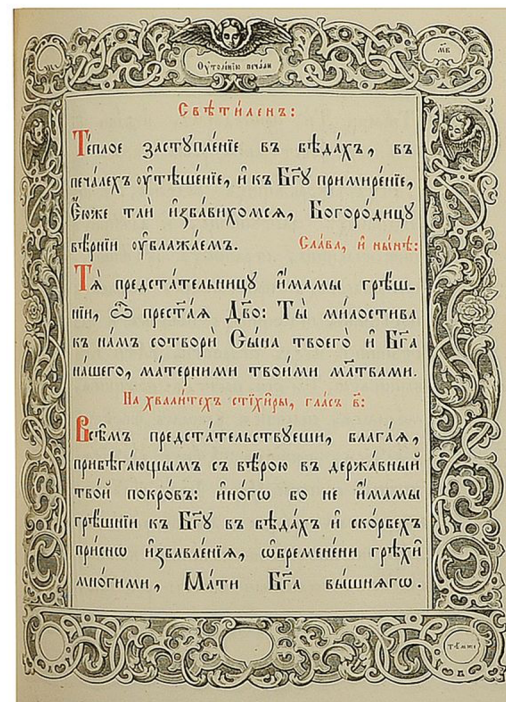 Оу҆толе́нїю печа́ли
м҃в
Свѣти́ленъ:
Те́плое застꙋпле́нїе въ бѣда́хъ, въ
печа́лехъ оу҆тѣше́нїе, и҆ къ Бг҃ꙋ примире́нїе,
Е҆́юже тлѝ и҆зба́вихомся, Богоро́дицꙋ
вѣ́рнїи оу҆блажа́емъ. Сла́ва, и҆ ны́нѣ:
Тѧ̀ предста́тельницꙋ и҆́мамы грѣ́ш-
нїи, ѽ прест҃а́ѧ Дв҃о: Ты̀ ми́лостива
къ на́мъ сотворѝ Сы́на твоего̀ и҆ Бг҃а
на́шего, ма́терними твои́ми мл҃твами.
На хвали́техъ стїхи̑ры, гла́съ в҃:
Всѣ̑мъ предста́тельствꙋеши, блага́ѧ,
прибѣга́ющымъ съ вѣ́рою въ держа́вный
тво́й покро́въ: и҆но́гѡ бо не и҆́мамы
грѣ́шнїи къ Бг҃ꙋ въ бѣда́хъ и҆ ско́рбехъ
при́снѡ и҆збавле́нїѧ, ѡ҆бремене́ни грѣхѝ
мно́гими, Ма́ти Бг҃а вы́шнѧгѡ.